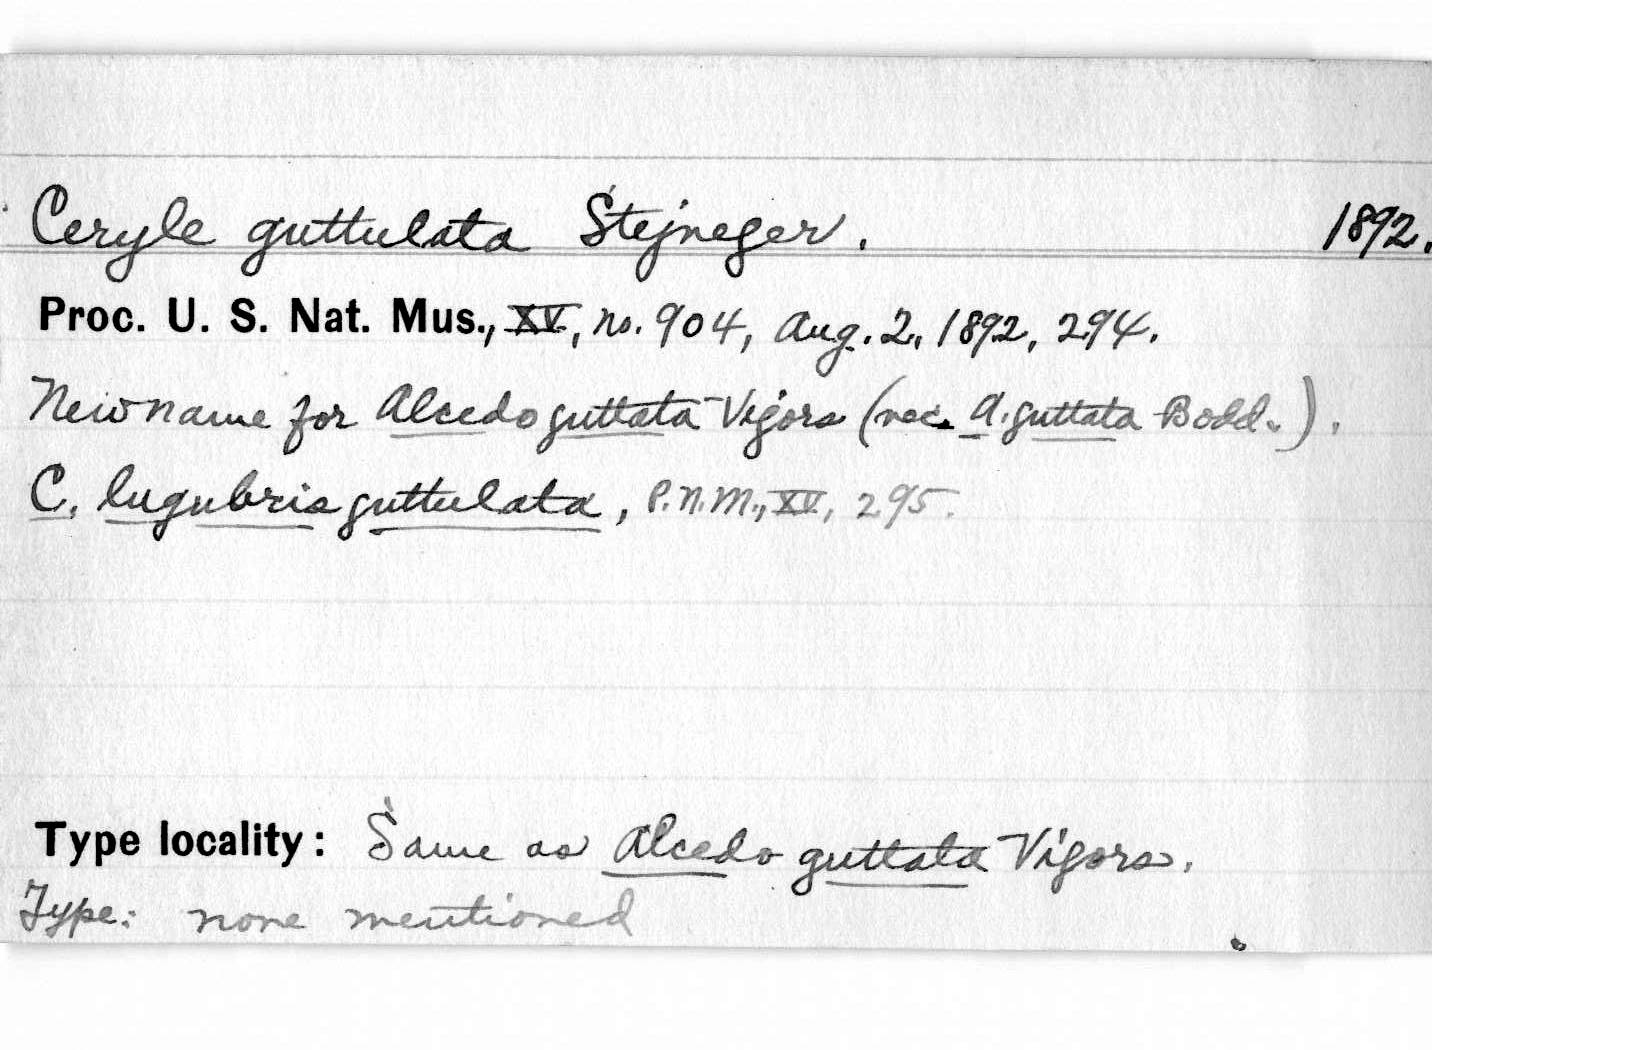 Ceryle guttulata Stejneger. 1892.
Proc. U. S. Nat. Mus., XV, no. 904, Aug. 2, 1892, 294.
New name for Alcedo guttata Vigors (nec. A. guttata Bodd.).
C. lugubris guttulata, P.N.M., XV, 295.
Type locality: Same as Alcedo guttata Vigors.
Type: none mentioned